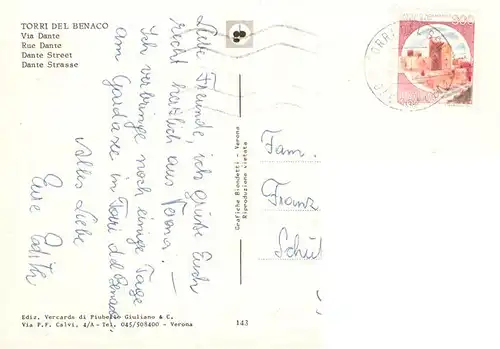 TORRI DEL BENACO
Via Dante
Rue Dante
Dante Street
Dante Strasse
Liebe Freunde, ich grüße Euch
recht herzlich aus Verona! —
Ich verbringe noch einige Tage
am Gardasee in Torri del Benaco.
Alles Liebe
Eure Edith
Ediz. Vercarda di Piubello Giuliano & C.
Via P.F. Calvi, 4/A - Tel. 045/508400 - Verona
143
Grafiche Biondetti - Verona
Riproduzione vietata
Fam.
Franz